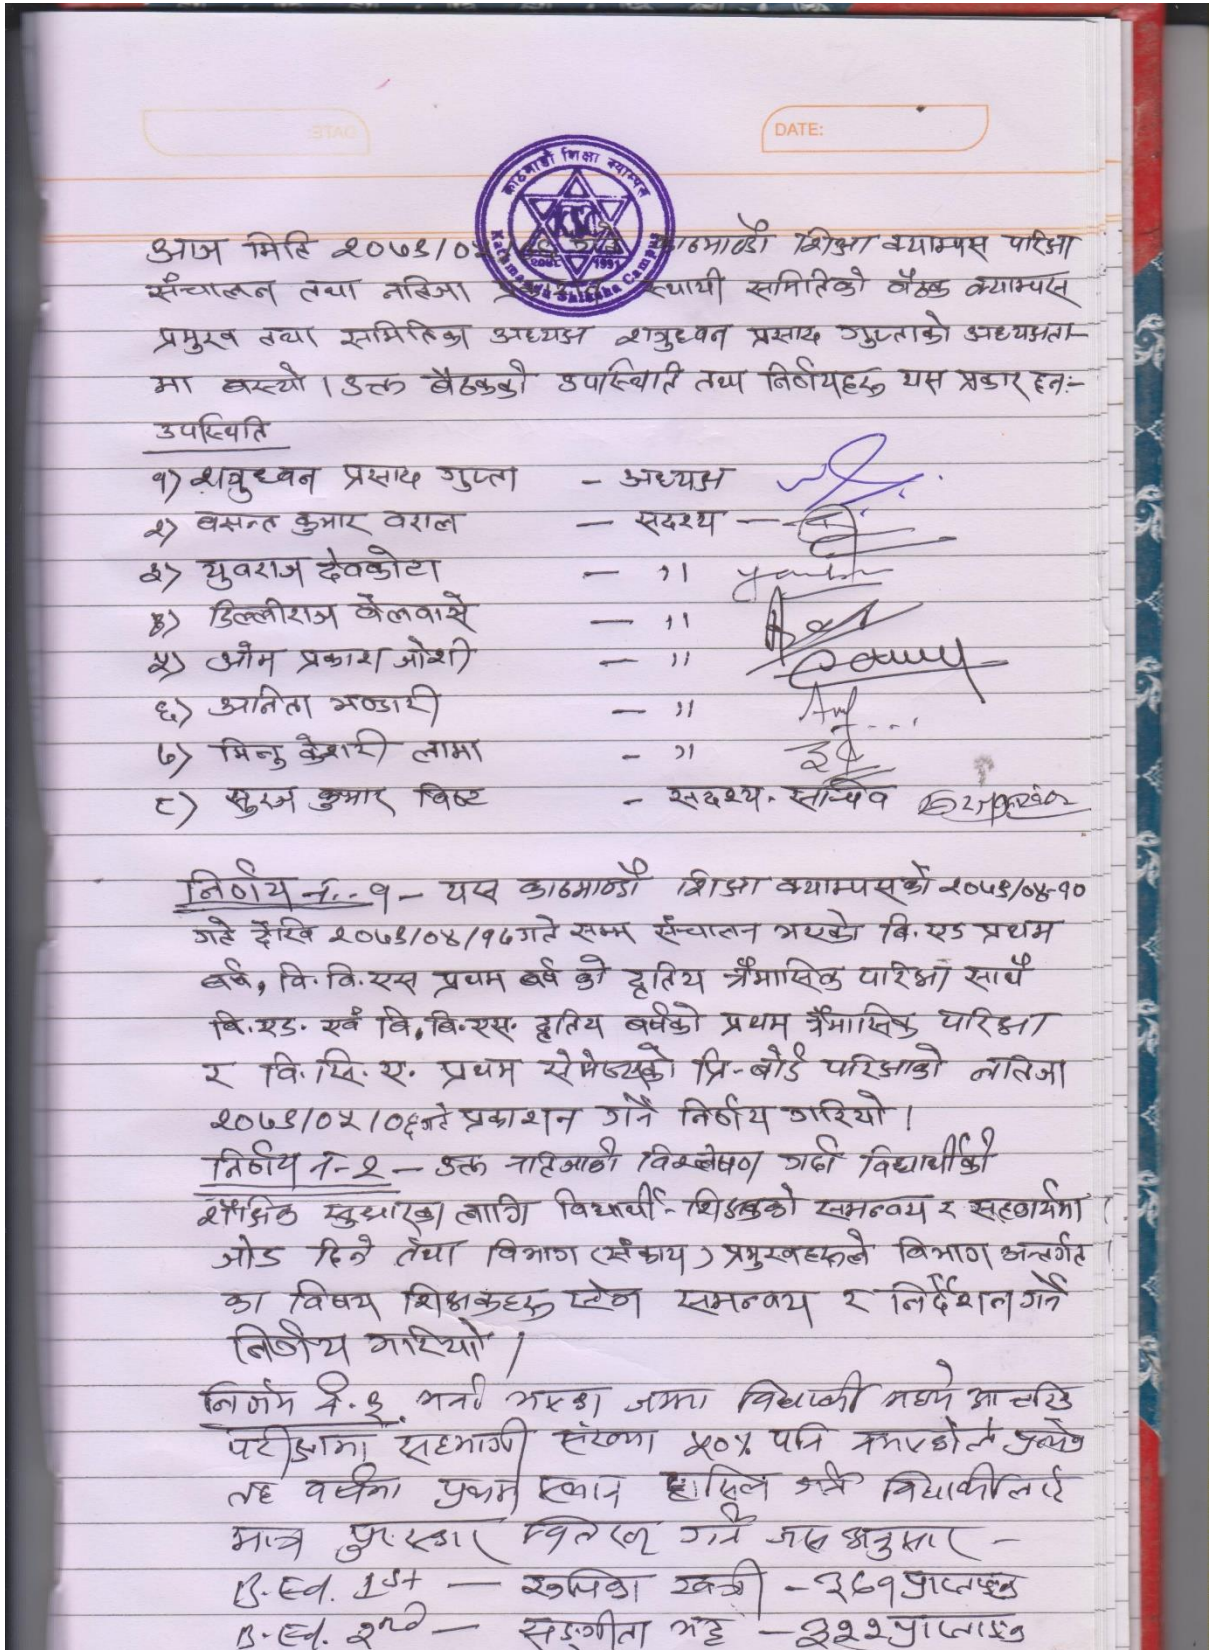 DATE:
काठमाडौं शिक्षा क्याम्पस
KSC
Kathmandu Shiksha Campus
आज मिति २०७९/०५/ गते काठमाण्डौ शिक्षा क्याम्पस परिक्षा
संचालन तथा नतिजा स्थायी समितिको बैठक क्याम्पस
प्रमुख तथा समितिका अध्यक्ष शत्रुध्वन प्रसाद गुप्ताको अध्यक्षता-
मा बस्यो । उक्त बैठकको उपस्थिति तथा निर्णयहरू यस प्रकार छन:-
उपस्थिति
१) शत्रुध्वन प्रसाद गुप्ता - अध्यक्ष
२) बसन्त कुमार वराल - सदस्य -
३) युवराज देवकोटा - ''
४) डिल्लीराज बेलवासे - ''
५) ओम प्रकाश जोशी - ''
६) अनिता भण्डारी - ''
७) मिनु केशरी लामा - ''
८) सुरज कुमार बिष्ट - सदस्य-सचिव
निर्णय नं.-१ - यस काठमाण्डौ शिक्षा क्याम्पसको २०७९/०४-१०
गते देखि २०७९/०४/१७ गते सम्म संचालन भएको बि.एड प्रथम
बर्ष, वि.बि.एस प्रथम बर्ष को दृतिय त्रैमासिक परिक्षा साथै
बि.एड. एवं बि.बि.एस. दृतिय बर्षको प्रथम त्रैमासिक परिक्षा
र बि.सि.ए. प्रथम सेमेष्टरको प्रि-बोर्ड परिक्षाको नतिजा
२०७९/०५/०६ गते प्रकाशन गर्ने निर्णय गरियो ।
निर्णय नं-२ - उक्त नतिजाको विश्लेषण गर्दा विद्यार्थीको
शैक्षिक सुधारका लागि विद्यार्थी-शिक्षकको समन्वय र सहकार्यमा
जोड दिने तथा विभाग (संकाय) प्रमुखहरूले विभाग अन्तर्गत
का विषय शिक्षकहरू समन्वय र निर्देशन गर्ने
निर्णय गरियो ।
निर्णय नं. ३ भर्ना भएका जम्मा विद्यार्थी मध्ये आन्तरिक
परीक्षामा सहभागी संख्या ५०% पनि नभएकोले प्रत्येक
तह वर्षमा प्रथम स्थान हासिल गर्ने विद्यार्थीलाई
मात्र पुरस्कार वितरण गर्ने जस अनुसार -
B.Ed. 1st - रूपिका खत्री - ३६१ प्राप्ताङ्क
B.Ed. 2nd - सङ्गीता भट्ट - ३२२ प्राप्ताङ्क